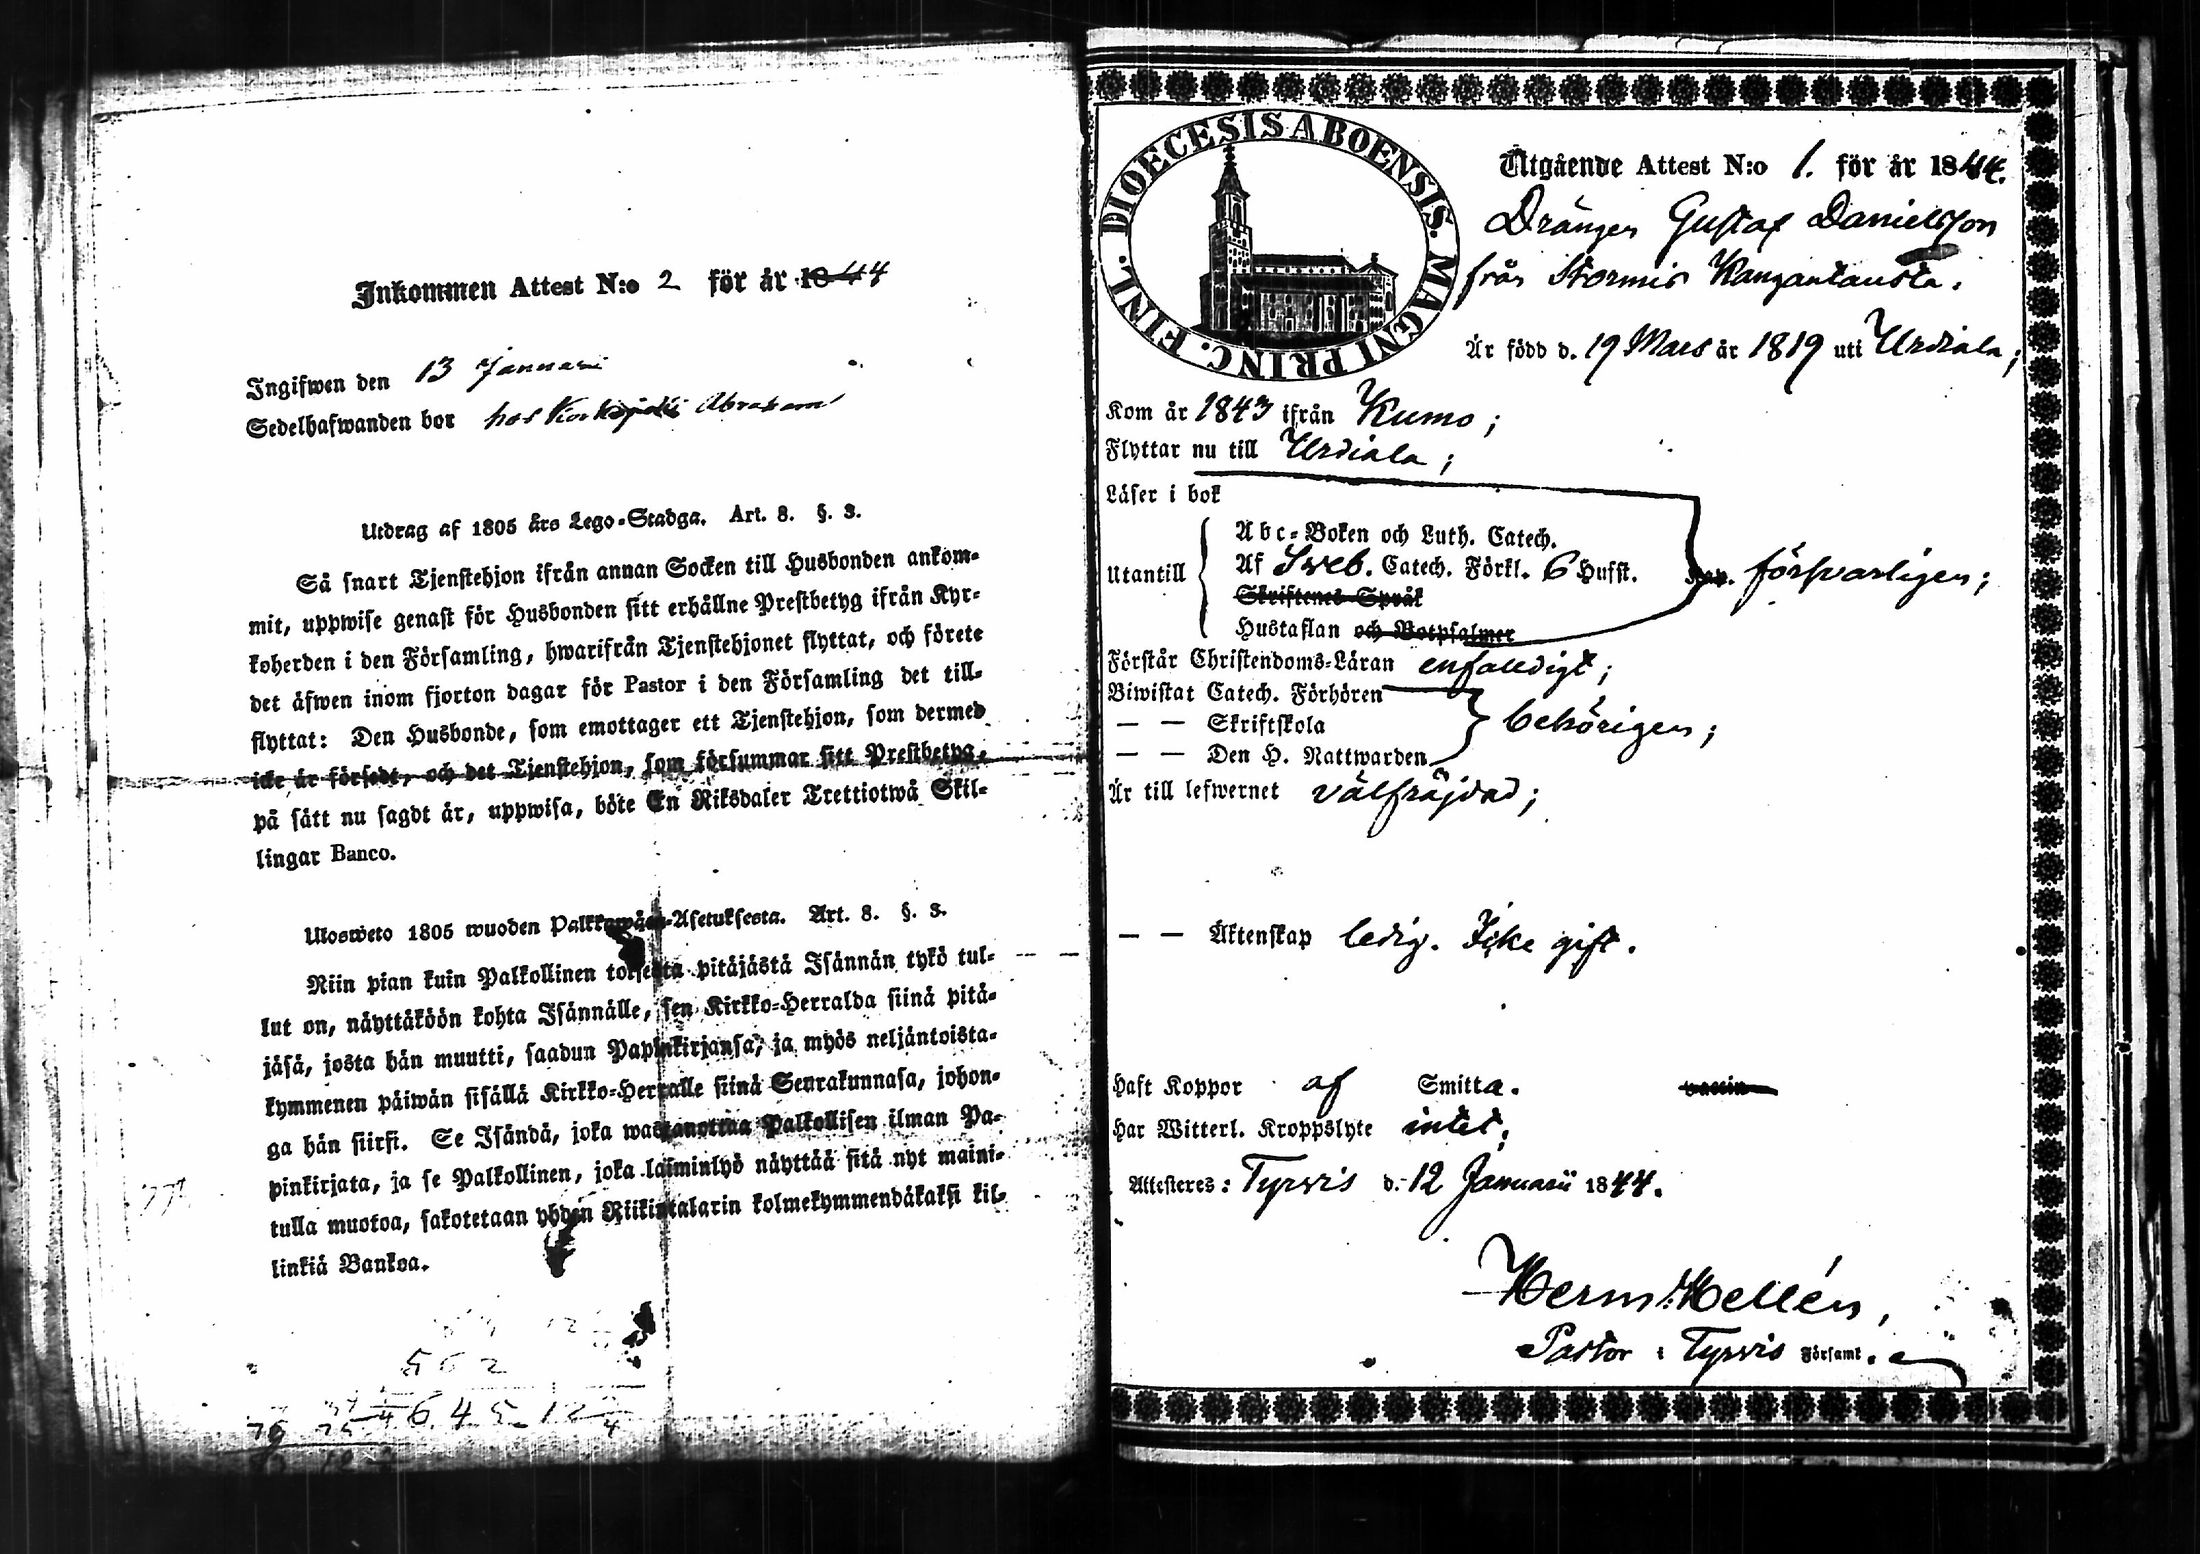 Inkommen Attest N:o 2 för år 1844
Ingifwen den 13 Januari
Sedelhafwanden bor hos Abraham
Utdrag af 1805 års Lego-Stadga. Art. 8. §. 3.
Så snart Tjenstehjon ifrån annan Socken till Husbonden ankom-
mit, uppwise genast för Husbonden sitt erhållne Prestbetyg ifrån Kyr-
koherden i den Församling, hwarifrån Tjenstehjonet flyttat, och förete
det äfwen inom fjorton dagar för Pastor i den Församling det till-
flyttat: Den Husbonde, som emottager ett Tjenstehjon, som dermed
icke är försedt, och det Tjenstehjon, som försummar sitt Prestbetyg,
på sätt nu sagdt är, uppwisa, böte En Riksdaler Trettiotwå Skil-
lingar Banco.
Ulosweto 1805 wuoden Palkkawäen-Asetuksesta. Art. 8. §. 3.
Niin pian kuin Palkollinen toisesta pitäjästä Isännän tykö tul-
lut on, näyttäköön kohta Isännälle, sen Kirkko-Herralda siinä pitä-
jäsä, josta hän muutti, saadun Papinkirjansa, ja myös neljäntoista-
kymmenen päiwän sisällä Kirkko-Herralle siinä Seurakunnasa, johon-
ga hän siirsi. Se Isändä, joka wastanottaa Palkollisen ilman Pa-
pinkirjata, ja se Palkollinen, joka laiminlyö näyttää sitä nyt maini-
tulla muotoa, sakotetaan yhden Riikintalarin kolmekymmendäkaksi kil-
linkiä Bankoa.
562
645-12
76 75 4
DIOECESIS ABOENSIS. MAGNI PRINC. FINL.
Utgående Attest N:o 1. för år 1844.
Drängen Gustaf Danielsson
från Stormis Kangantausta.
Är född d. 19 Mars år 1819 uti Urdiala;
Kom år 1843 ifrån Kumo;
Flyttar nu till Urdiala;
Läser i bok
Abc-Boken och Luth. Catech.
Utantill Af Sveb. Catech. Förkl. 6 Hufst. försvarligen;
Skriftenes Språk
Hustaflan och Botpsalmer
Förstår Christendoms-Läran enfaldigt;
Biwistat Catech. Förhören
— — Skriftskola behörigen;
— — Den H. Nattwarden
Är till lefwernet välfräjdad;
— — Äktenskap ledig. Icke gift.
Haft Koppor af Smitta. vaccin
Har Witterl. Kroppslyte intet;
Attesteres: Tyrvis d. 12 Januarii 1844.
Herm: Hellén,
Pastor i Tyrvis Församl.